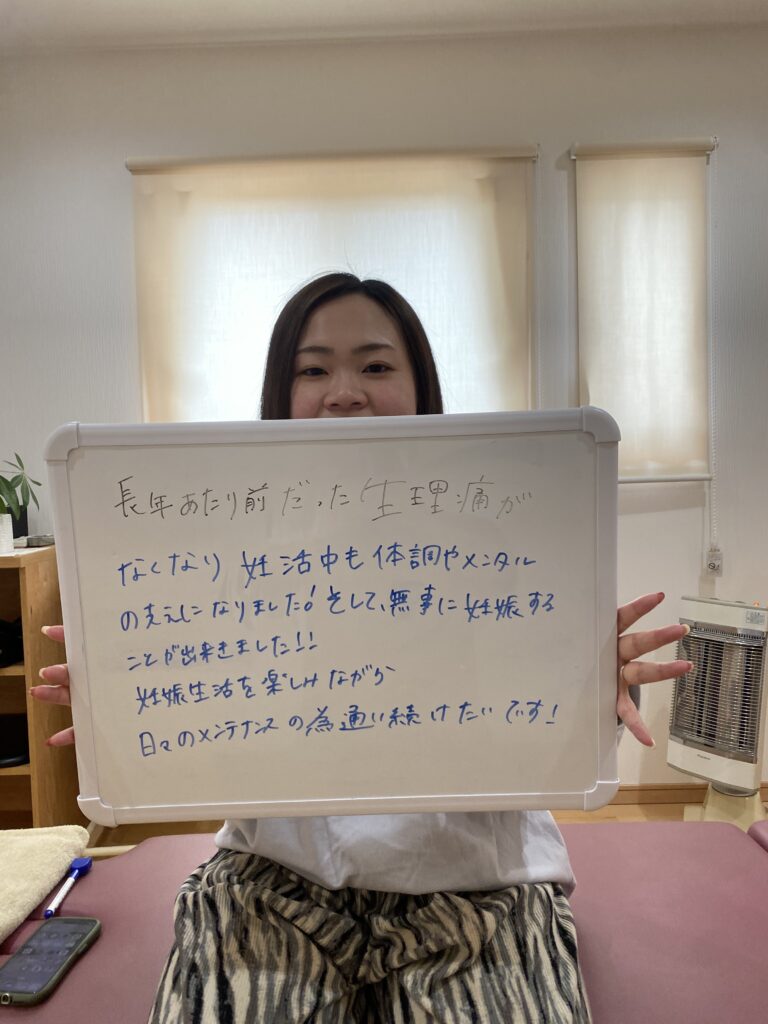 長年あたり前だった生理痛が
なくなり 妊活中も体調やメンタル
の支えになりました!そして、無事に妊娠する
ことが出来きました!!
妊娠生活を楽しみながら
日々のメンテナンスの為通い続けたいです!